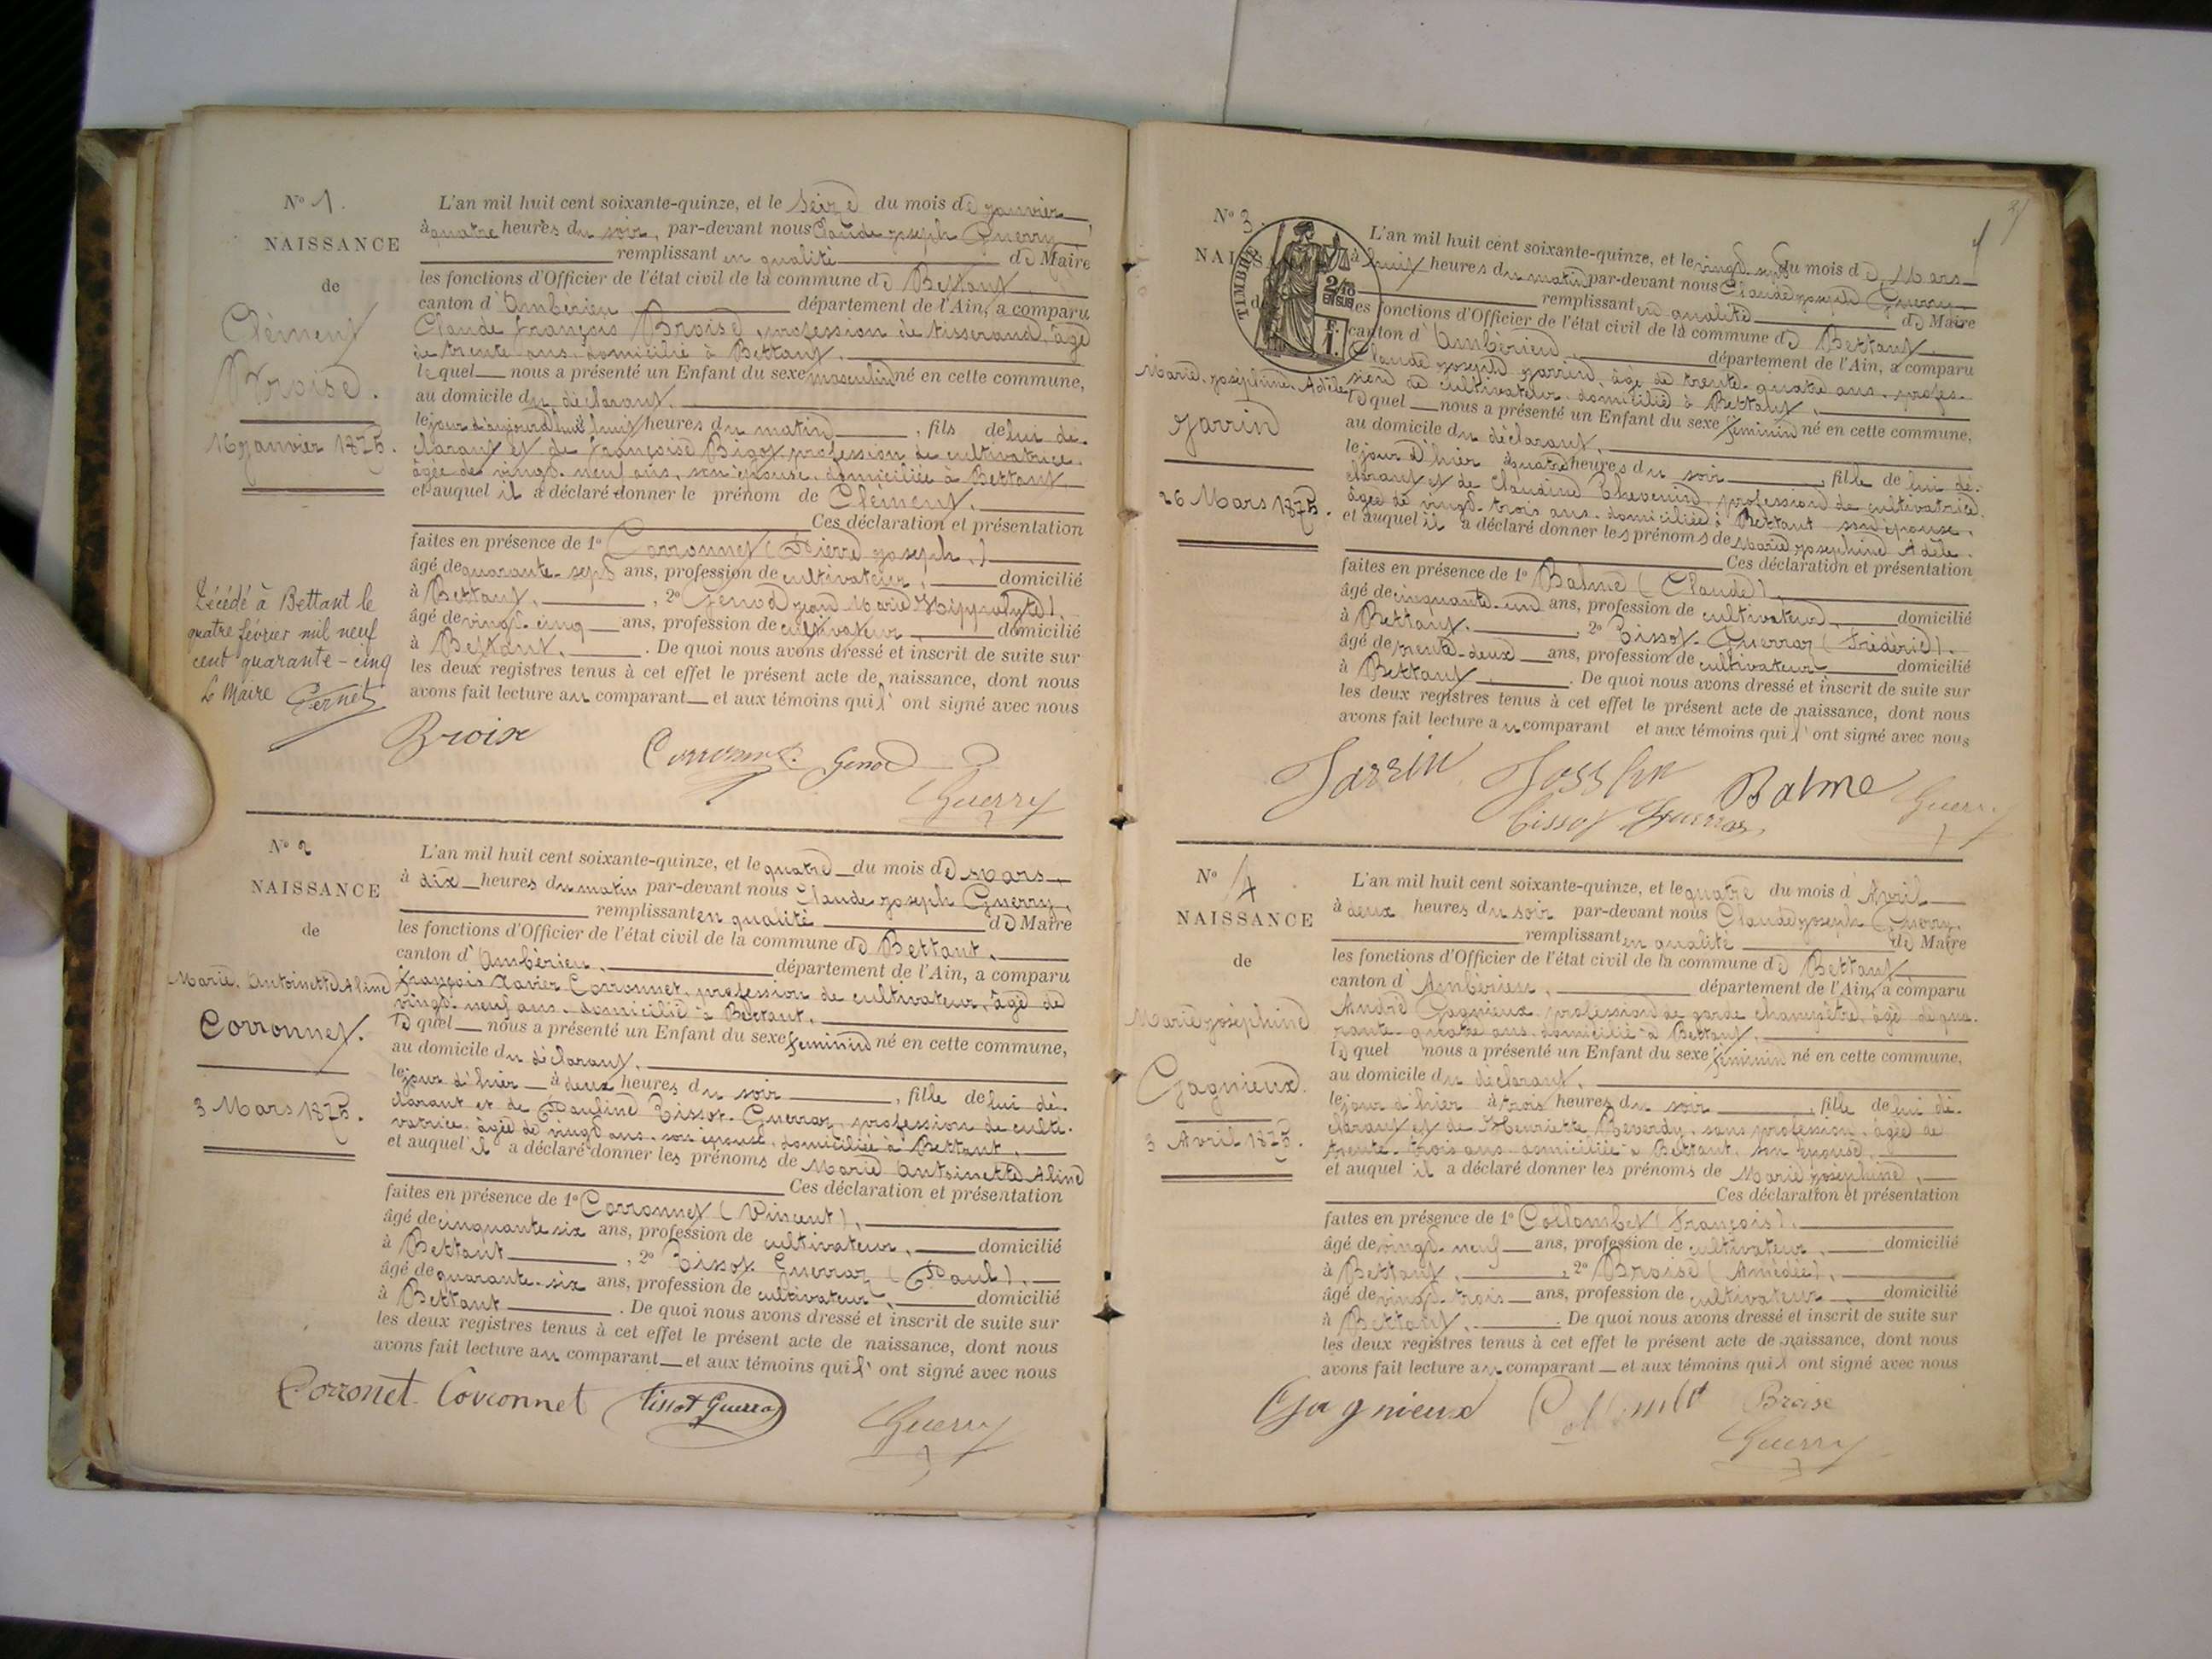 N° 1.
NAISSANCE
de
Clément
Broise.
16 janvier 1875.
Décédé à Bettant le
quatre février mil neuf
cent quarante-cinq
Le Maire Pernet
L'an mil huit cent soixante-quinze, et le seize du mois de janvier
à quatre heures du soir, par-devant nous Claude joseph Guerry
remplissant en qualité de Maire
les fonctions d'Officier de l'état civil de la commune de Bettant
canton d'Ambérieu département de l'Ain, a comparu
Claude françois Broise, profession de tisserand, âgé
de trente ans, domicilié à Bettant,
lequel nous a présenté un Enfant du sexe masculin né en cette commune,
au domicile du déclarant,
le jour d'aujourd'hui à huit heures du matin, fils de lui dé-
clarant et de françoise Bigot profession de cultivatrice,
âgée de vingt-neuf ans, son épouse, domiciliée à Bettant,
et auquel il a déclaré donner le prénom de Clément.
Ces déclaration et présentation
faites en présence de 1° Corronnet (Pierre joseph,)
âgé de quarante-sept ans, profession de cultivateur, domicilié
à Bettant, 2° Genod jean Marie Hippolyte)
âgé de vingt-cinq ans, profession de cultivateur domicilié
à Bettant. De quoi nous avons dressé et inscrit de suite sur
les deux registres tenus à cet effet le présent acte de naissance, dont nous
avons fait lecture au comparant et aux témoins qui l'ont signé avec nous
Broise Corronnet. Genod
Guerry
N° 2
NAISSANCE
de
Marie, Antoinette Aline
Corronnet.
3 Mars 1875.
L'an mil huit cent soixante-quinze, et le quatre du mois de Mars
à dix heures du matin par-devant nous Claude joseph Guerry,
remplissant en qualité de Maire
les fonctions d'Officier de l'état civil de la commune de Bettant,
canton d'Ambérieu, département de l'Ain, a comparu
françois Xavier Corronnet, profession de cultivateur, âgé de
vingt-neuf ans, domicilié à Bettant,
lequel nous a présenté un Enfant du sexe féminin né en cette commune,
au domicile du déclarant,
le jour d'hier à deux heures du soir, fille de lui dé-
clarant et de Pauline Tissot-Guerraz, profession de culti-
vatrice, âgée de vingt ans, son épouse, domiciliée à Bettant,
et auquel il a déclaré donner les prénoms de Marie Antoinette Aline
Ces déclaration et présentation
faites en présence de 1° Corronnet (Vincent),
âgé de cinquante six ans, profession de cultivateur, domicilié
à Bettant, 2° Tissot Guerraz (Paul),
âgé de quarante-six ans, profession de cultivateur, domicilié
à Bettant. De quoi nous avons dressé et inscrit de suite sur
les deux registres tenus à cet effet le présent acte de naissance, dont nous
avons fait lecture au comparant et aux témoins qui l'ont signé avec nous
Corronet. Corronnet Tissot Guerraz
Guerry
N° 3.
NAISSA
de
TIMBRE
2/10 EN SUS
F. 1.
Marie, joséphine, Adèle
Jarrin
26 Mars 1875.
L'an mil huit cent soixante-quinze, et le vingt-sept du mois de Mars
à huit heures du matin par-devant nous Claude joseph Guerry
remplissant en qualité de Maire
les fonctions d'Officier de l'état civil de la commune de Bettant
canton d'Ambérieu, département de l'Ain, a comparu
Claude joseph Jarrin, âgé de trente-quatre ans, profes-
sion de cultivateur, domicilié à Bettant,
lequel nous a présenté un Enfant du sexe féminin né en cette commune,
au domicile du déclarant,
le jour d'hier à quatre heures du soir, fille de lui dé-
clarant et de Claudine Thevenin, profession de cultivatrice,
âgée de vingt-trois ans, domiciliée à Bettant son épouse,
et auquel il a déclaré donner les prénoms de Marie josephine Adèle.
Ces déclaration et présentation
faites en présence de 1° Balme (Claude),
âgé de cinquante-un ans, profession de cultivateur, domicilié
à Bettant. 2° Tissot-Guerraz (Frédéric).
âgé de trente-deux ans, profession de cultivateur domicilié
à Bettant. De quoi nous avons dressé et inscrit de suite sur
les deux registres tenus à cet effet le présent acte de naissance, dont nous
avons fait lecture au comparant et aux témoins qui l'ont signé avec nous
Jarrin Balme Guerry
Tissot Guerraz
N° 4
NAISSANCE
de
Marie joséphine
Gagnieux.
3 Avril 1875.
L'an mil huit cent soixante-quinze, et le quatre du mois d'Avril
à deux heures du soir par-devant nous Claude joseph Guerry.
remplissant en qualité de Maire
les fonctions d'Officier de l'état civil de la commune de Bettant
canton d'Ambérieu, département de l'Ain, a comparu
André Gagnieux profession de garde champêtre, âgé de qua-
rante-quatre ans, domicilié à Bettant,
lequel nous a présenté un Enfant du sexe féminin né en cette commune,
au domicile du déclarant,
le jour d'hier à trois heures du soir, fille de lui dé-
clarant et de Henriette Reverdy, sans profession, âgée de
trente-trois ans domiciliée à Bettant, son épouse,
et auquel il a déclaré donner les prénoms de Marie joséphine,
Ces déclaration et présentation
faites en présence de 1° Collombet (François),
âgé de vingt-neuf ans, profession de cultivateur, domicilié
à Bettant, 2° Broise (Amédée),
âgé de vingt-trois ans, profession de cultivateur, domicilié
à Bettant. De quoi nous avons dressé et inscrit de suite sur
les deux registres tenus à cet effet le présent acte de naissance, dont nous
avons fait lecture au comparant et aux témoins qui l'ont signé avec nous
Gagnieux Collombet Broise
Guerry